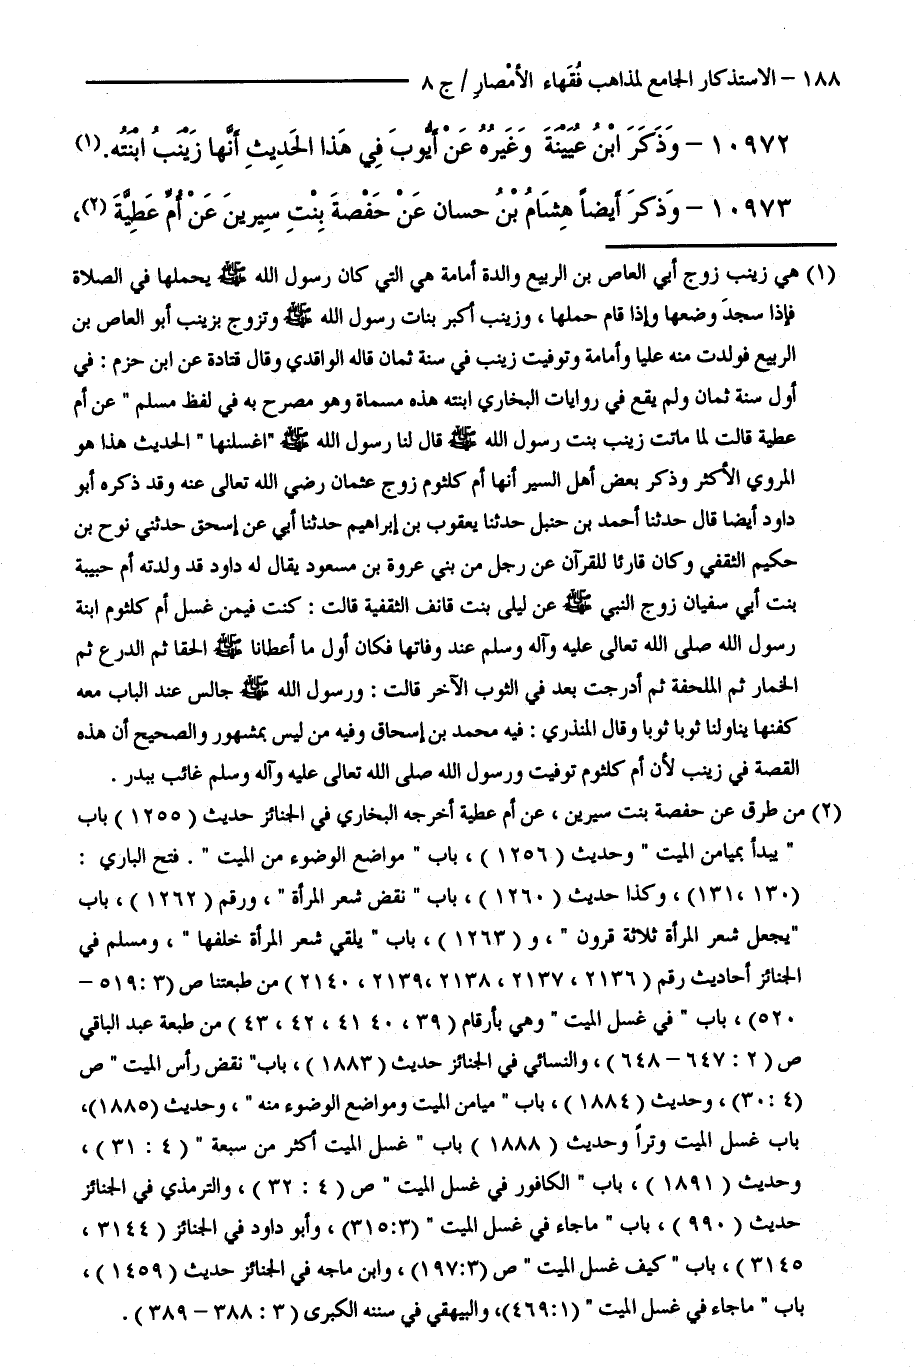 ١٨٨ – الاستذكار الجامع لمذاهب فُقَهاء الأمْصارِ / ج ٨
١٠٩٧٢ – وَذَكَرَ ابْنُ عُيَيْنَةَ وَغَيْرُهُ عَنْ أَيُّوبَ فِي هَذا الحَدِيثِ أَنَّها زَيْنَبُ ابْنَتُه. (١)
١٠٩٧٣ – وَذَكرَ أَيضاً هِشَامُ بْنُ حسان عَنْ حَفْصةَ بِنْتِ سِيرينَ عَنْ أُمِّ عَطِيَّةَ (٢)،
(١) هي زينب زوج أبي العاص بن الربيع والدة أمامة هي التي كان رسول الله ﷺ يحملها في الصلاة
فإذا سجدَ وضعها وإذا قام حملها ، وزينب أكبر بنات رسول الله ﷺ وتزوج بزينب أبو العاص بن
الربيع فولدت منه عليا وأمامة وتوفيت زينب في سنة ثمان قاله الواقدي وقال قتادة عن ابن حزم : في
أول سنة ثمان ولم يقع في روايات البخاري ابنته هذه مسماة وهو مصرح به في لفظ مسلم " عن أم
عطية قالت لما ماتت زينب بنت رسول الله ﷺ قال لنا رسول الله ﷺ "اغسلنها " الحديث هذا هو
المروي الأكثر وذكر بعض أهل السير أنها أم كلثوم زوج عثمان رضي الله تعالى عنه وقد ذكره أبو
داود أيضا قال حدثنا أحمد بن حنبل حدثنا يعقوب بن إبراهيم حدثنا أبي عن إسحق حدثني نوح بن
حكيم الثقفي وكان قارئا للقرآن عن رجل من بني عروة بن مسعود يقال له داود قد ولدته أم حبيبة
بنت أبي سفيان زوج النبي ﷺ عن ليلى بنت قانف الثقفية قالت : كنت فيمن غسل أم كلثوم ابنة
رسول الله صلى الله تعالى عليه وآله وسلم عند وفاتها فكان أول ما أعطانا ﷺ الحقا ثم الدرع ثم
الخمار ثم الملحفة ثم أدرجت بعد في الثوب الآخر قالت : ورسول الله ﷺ جالس عند الباب معه
كفنها يناولنا ثوبا ثوبا وقال المنذري : فيه محمد بن إسحاق وفيه من ليس بمشهور والصحيح أن هذه
القصة في زينب لأن أم كلثوم توفيت ورسول الله صلى الله تعالى عليه وآله وسلم غائب ببدر .
(٢) من طرق عن حفصة بنت سيرين ، عن أم عطية أخرجه البخاري في الجنائز حديث ( ١٢٥٥ ) باب
" يبدأ بميامن الميت " وحديث ( ١٢٥٦ ) ، باب " مواضع الوضوء من الميت " . فتح الباري :
(١٣٠ ،١٣١) ، وكذا حديث ( ١٢٦٠ ) ، باب " نقض شعر المرأة " ، ورقم ( ١٢٦٢ ) ، باب
"يجعل شعر المرأة ثلاثة قرون " ، و ( ١٢٦٣ ) ، باب " يلقي شعر المرأة خلفها " ، ومسلم في
الجنائز أحاديث رقم ( ٢١٣٦ ، ٢١٣٧ ، ٢١٣٨ ،٢١٣٩ ، ٢١٤٠ ) من طبعتنا ص (٣ :٥١٩ –
٥٢٠) ، باب " في غسل الميت " وهي بأرقام ( ٣٩ ، ٤٠ ٤١ ، ٤٢ ، ٤٣ ) من طبعة عبد الباقي
ص ( ٢ : ٦٤٧ – ٦٤٨ ) ، والنسائي في الجنائز حديث ( ١٨٨٣ ) ، باب" نقض رأس الميت " ص
(٤ :٣٠) ، وحديث ( ١٨٨٤ ) ، باب " ميامن الميت ومواضع الوضوء منه " ، وحديث (١٨٨٥)،
باب غسل الميت وتراً وحديث ( ١٨٨٨ ) باب " غسل الميت أكثر من سبعة " ( ٤ : ٣١ ) ،
وحديث ( ١٨٩١ ) ، باب " الكافور في غسل الميت " ص ( ٤ : ٣٢ ) ، والترمذي في الجنائز
حديث ( ٩٩٠ ) ، باب " ماجاء في غسل الميت " (٣:٣١٥) ، وأبو داود في الجنائز ( ٣١٤٤ ،
٣١٤٥ ) ، باب " كيف غسل الميت " ص (٣:١٩٧) ، وابن ماجه في الجنائز حديث ( ١٤٥٩ ) ،
باب " ماجاء في غسل الميت " (١:٤٦٩)، والبيهقي في سننه الكبرى ( ٣ : ٣٨٨ – ٣٨٩ ) .